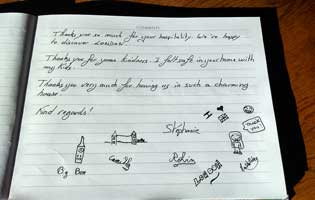 Comments
Thank you so much for your hospitality. We're happy
to discover London!
Thank you for your kindness. I felt safe in your home with
my kids.
Thanks you very much for having us in such a charming
house!
Kind regards!
Stéphanie
I
THANK
YOU
Camille
Robin
Big Ben
LONDON